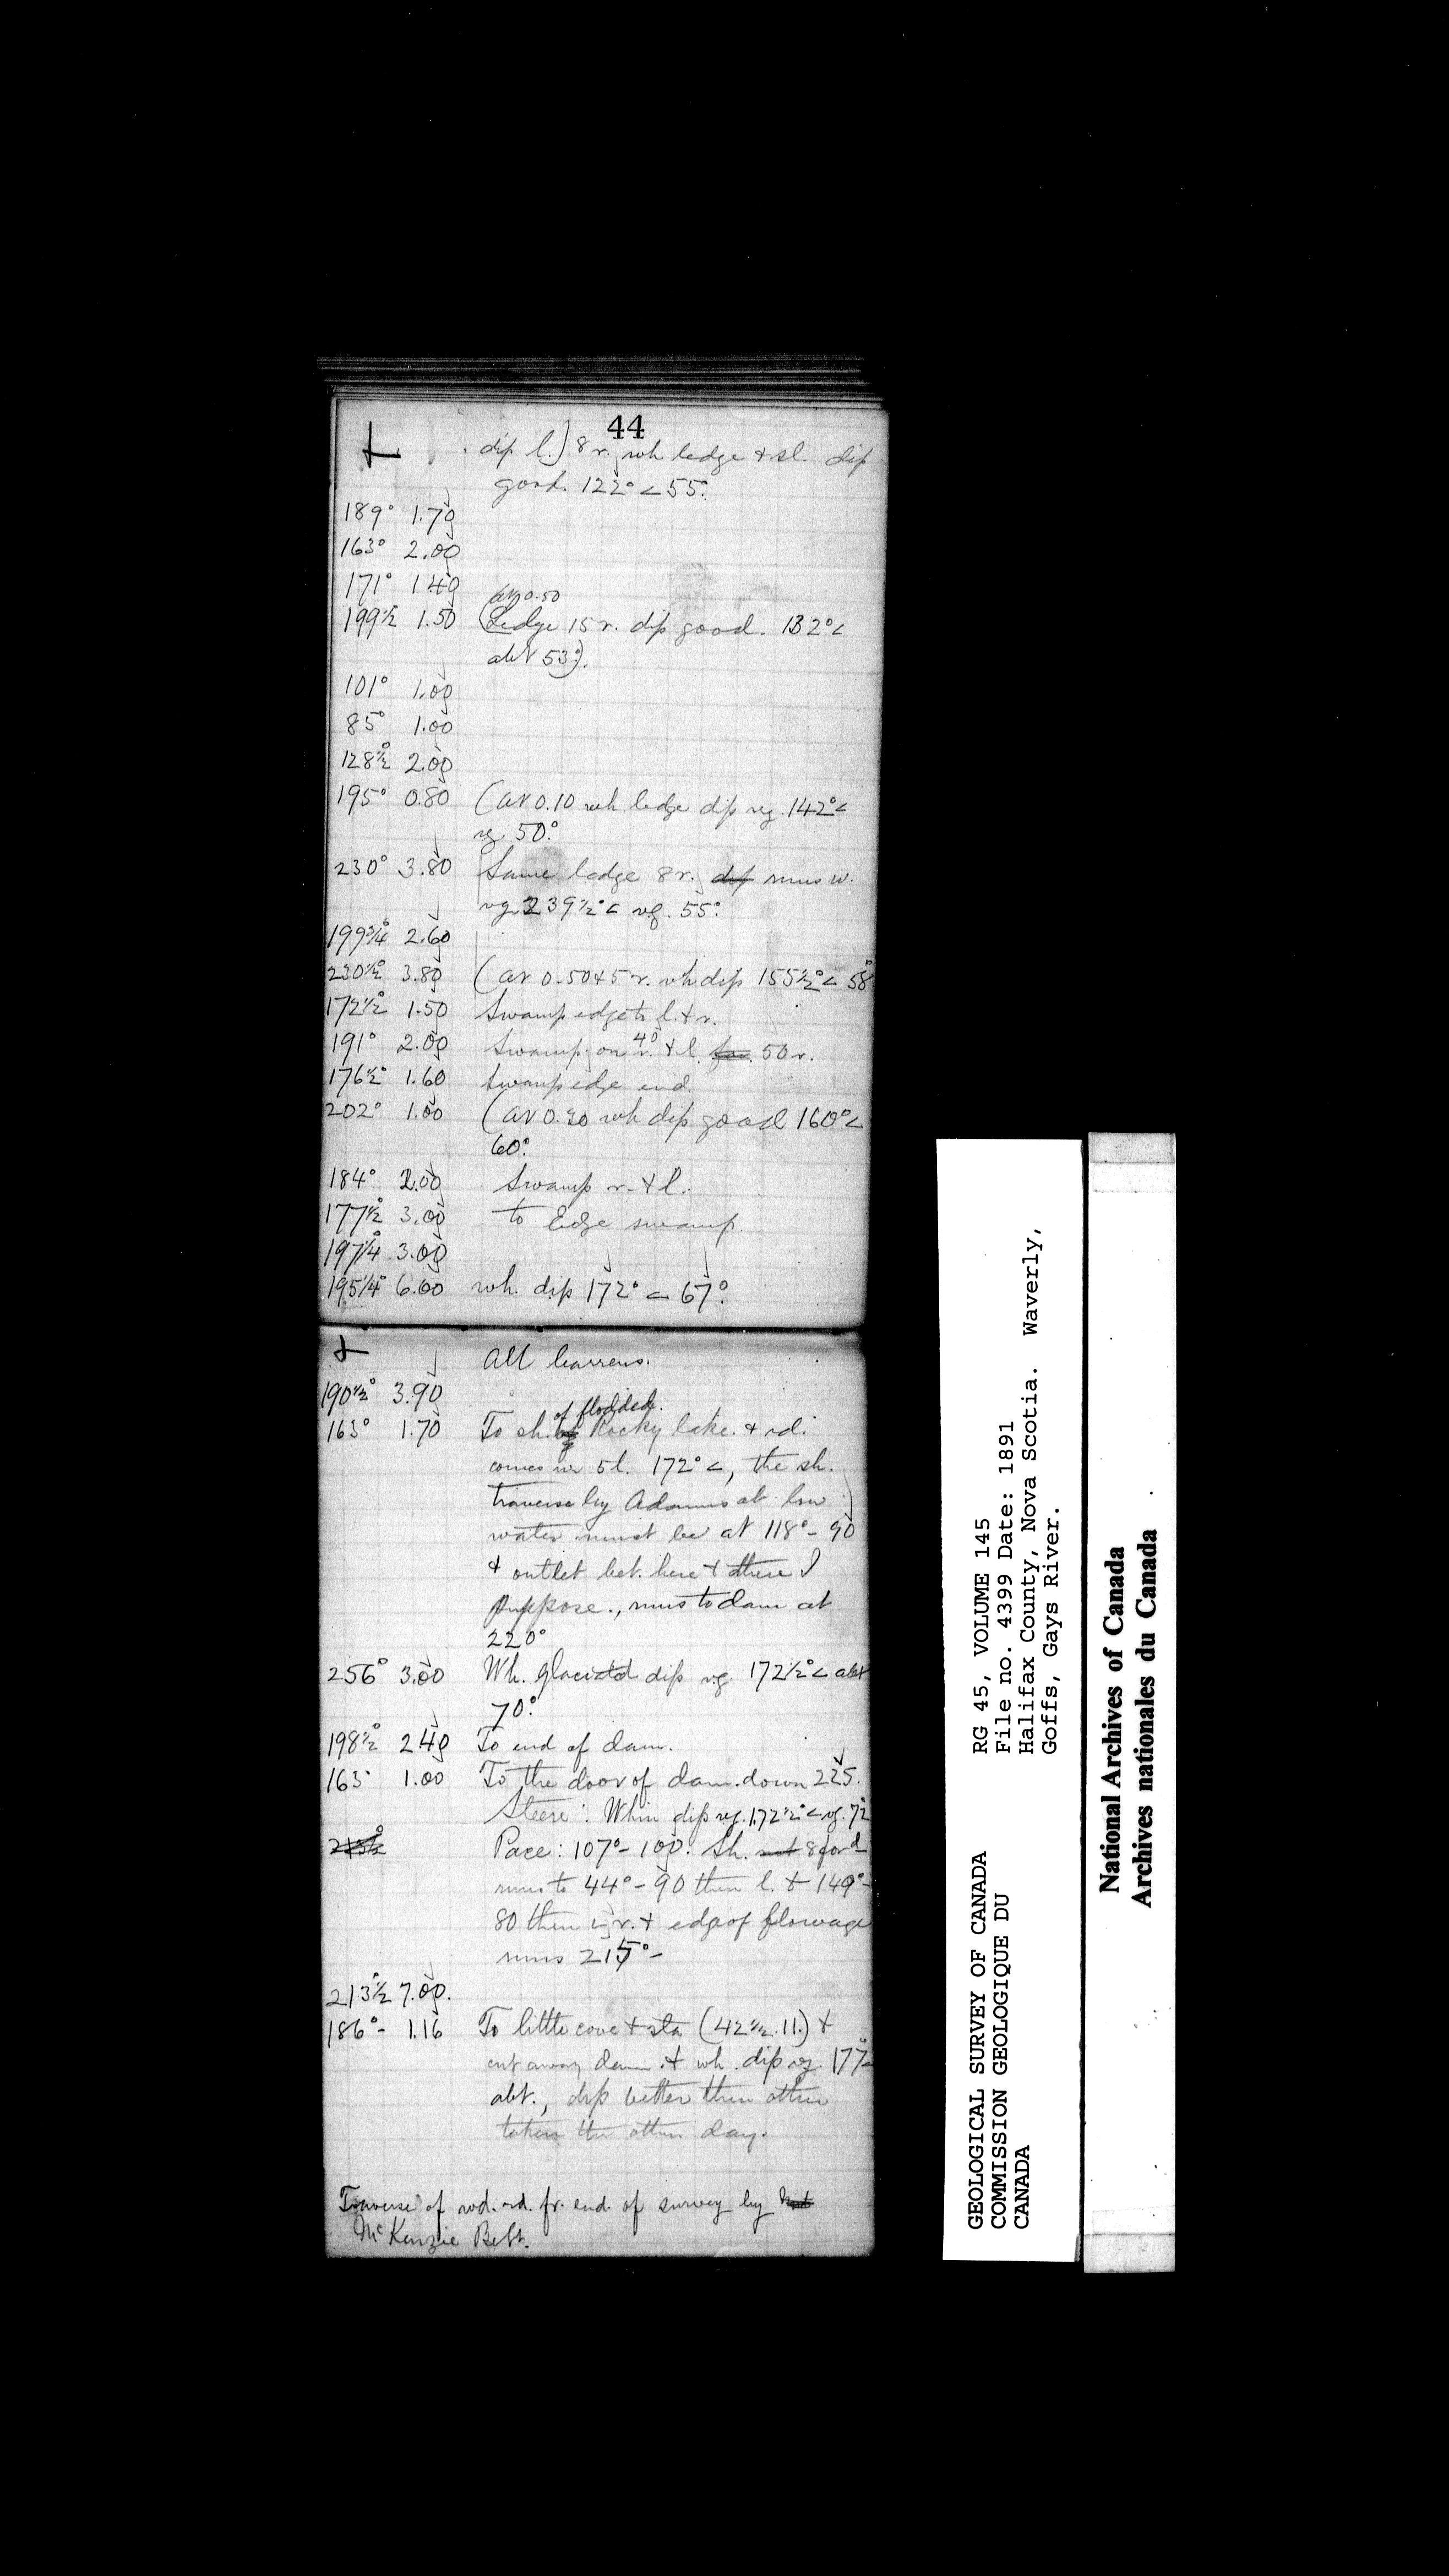 44
dip l.) 8 r. wh ledge & sl. dip
good. 122° < 55°.
189° 1.70
163° 2.00
171° 1.40
(at 0.50
199½ 1.50 Ledge 15 r. dip good. 132° <
abt 53°).
101° 1.00
85° 1.00
128½° 2.00
195° 0.80 (at 0.10 wh ledge dip vg. 142° <
vg. 50°.
230° 3.80 Same ledge 8 r. dip runs w.
vg. 239½° < vg. 55°.
199¾° 2.60
230½° 3.80 (at 0.50 & 5 r. wh dip 155½° < 58°
172½° 1.50 Swamp edge to l. & r.
191° 2.00 Swamp on 40 r. & l. for 50 r.
176½° 1.60 Swamp edge end.
202° 1.00 (at 0.20 wh dip good 160° <
60°.
184° 2.00 Swamp r. & l.
177½° 3.00 to Edge swamp.
197¼° 3.00
195¼° 6.00 wh. dip 172° < 67°.
All barrens.
190½° 3.90
of flooded.
163° 1.70 To sh. Rocky lake. & rd.
comes in 5 l. 172° <, the sh.
traverse by Adams at low
water must be at 118° - 90
& outlet bet. here & there I
suppose., runs to dam at
220°
256° 3.00 Wh. glaciated dip vg. 172½° < abt
70°.
198½° 2.40 To end of dam.
163° 1.00 To the door of dam. down 225.
Steere: Whin dip vg. 172½° < vg. 72°
Pace: 107° - 100. Sh. 8 ford
runs to 44° - 90 then l. & 149° -
80 then r. & edge of flowage
runs 215° -
213½° 7.00.
186° - 1.16 To little cove & sta (42½.11.) &
cut away dam. & wh. dip vg. 177°
abt., dip better than other
taken the other day.
Traverse of wd. rd. fr. end of survey by
McKenzie Bebt.
GEOLOGICAL SURVEY OF CANADA
COMMISSION GEOLOGIQUE DU
CANADA
RG 45, VOLUME 145
File no. 4399 Date: 1891
Halifax County, Nova Scotia. Waverly,
Goffs, Gays River.
National Archives of Canada
Archives nationales du Canada